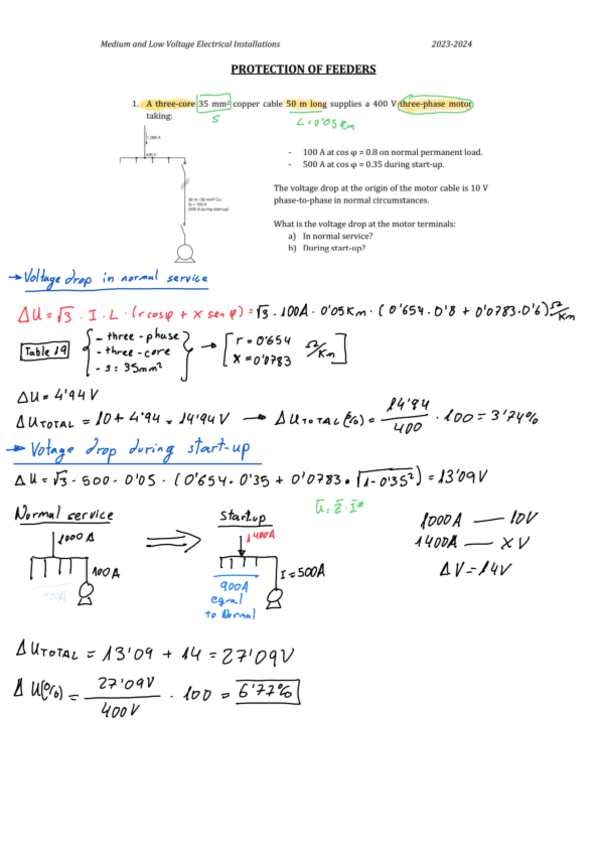 Medium and Low Voltage Electrical Installations 2023-2024
PROTECTION OF FEEDERS
1. A three-core 35 mm² copper cable 50 m long supplies a 400 V three-phase motor
taking:
S
L=0'05Km
- 100 A at cos φ = 0.8 on normal permanent load.
- 500 A at cos φ = 0.35 during start-up.
The voltage drop at the origin of the motor cable is 10 V
phase-to-phase in normal circumstances.
What is the voltage drop at the motor terminals:
a) In normal service?
b) During start-up?
1.000 A
400 V
500 A during start-up
→ Voltage drop in normal service
ΔU = √3 · I · L · (r cosφ + x senφ) = √3 · 100A · 0'05Km · (0'654 · 0'8 + 0'0783 · 0'6) Ω/Km
Table 19
- three-phase
- three-core
- s = 35mm²
→ [r = 0'654
x = 0'0783] Ω/Km
ΔU = 4'94 V
ΔU TOTAL = 10 + 4'94 = 14'94 V → ΔU TOTAL (%) = 14'94 / 400 · 100 = 3'74%
→ Votage drop during start-up
ΔU = √3 · 500 · 0'05 · (0'654 · 0'35 + 0'0783 · √1-0'35²) = 13'09 V
Normal service
1000 A
100 A
⟹
Startup
1400A
I = 500A
900A
equal
to Normal
Ū = Z̄ · Ī*
1000A — 10V
1400A — X V
ΔV = 14V
ΔU TOTAL = 13'09 + 14 = 27'09V
ΔU(%) = 27'09V / 400V · 100 = 6'77%